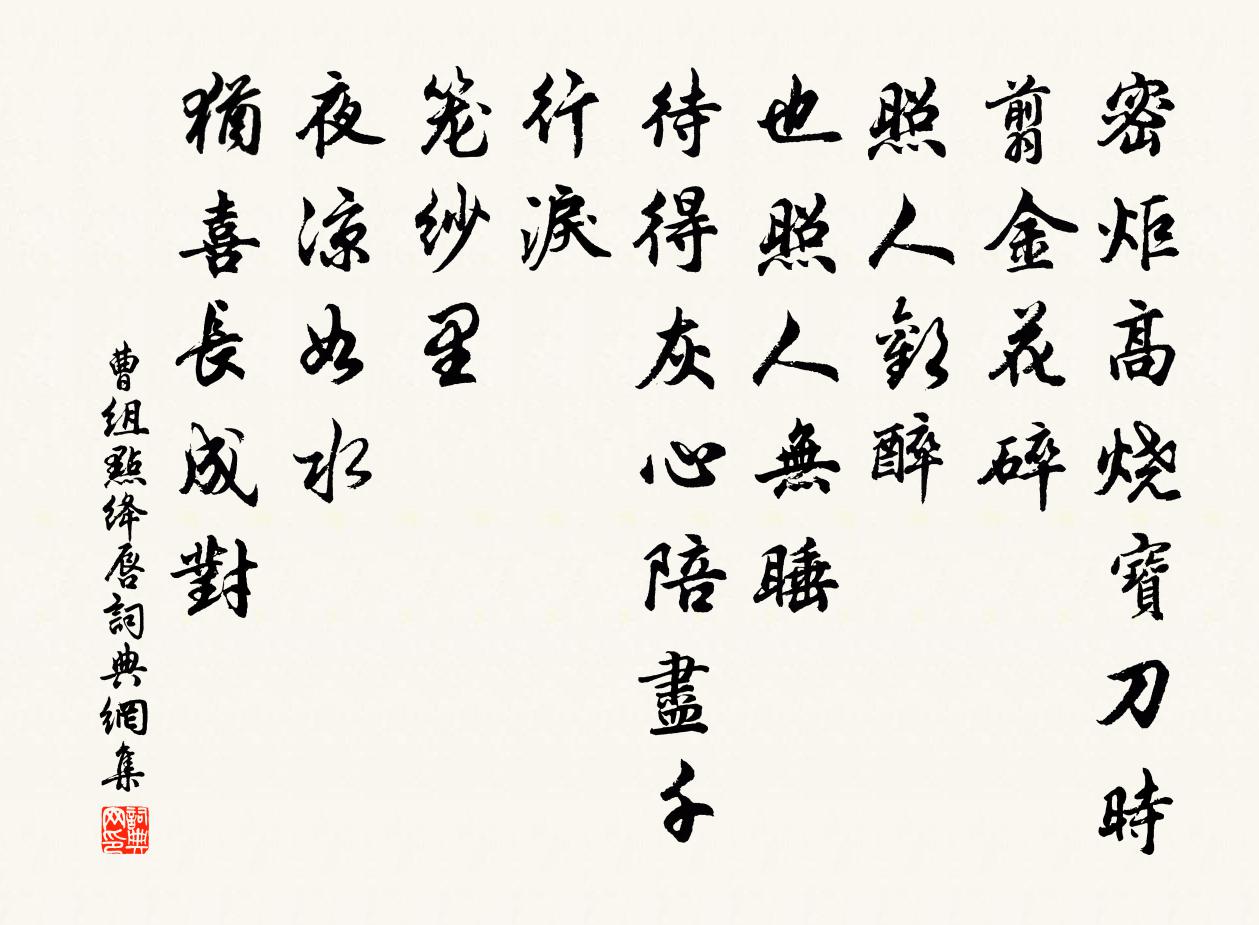 密炬高燒寶刀時
剪金花碎
照人歡醉
也照人無睡
待得灰心陪盡千
行淚
笼紗里
夜凉如水
猶喜長成對
曹組點绛唇詞典網集
詞典網印